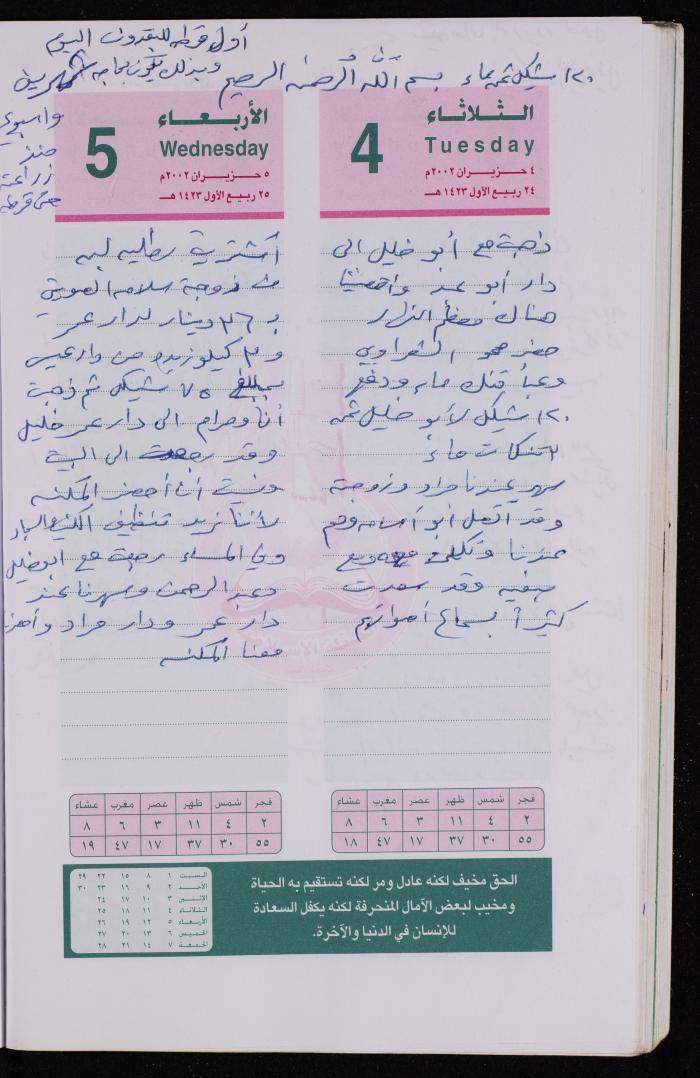 أول قرطه للبقدونس اليوم
وبذلك يكون بحاجه شهرين
واسبوع
منذ
زراعته
حتى قرطه
١٢٠ شيكل ثمن ماء بسم الله الرحمن الرحيم
الثلاثاء
4
Tuesday
٤ حزيران ٢٠٠٢م
٢٤ ربيع الأول ١٤٢٣ هـ
ذهبت مع أبو خليل الى
دار أبو عمر وامضينا
هناك معظم النهار
حضر محمود الشعراوي
وعبأ تنك ماء ودفع
١٢٠ شيكل لأبو خليل ثمن
تنكات ماء
سهر عندنا مراد وزوجته
وقد اتصل أبو أسامه وهم
عندنا وتكلمت معه ومع
صفيه وقد سعدت
كثيراً بسماع أصواتهم
الأربعاء
5
Wednesday
٥ حزيران ٢٠٠٢م
٢٥ ربيع الأول ١٤٢٣ هـ
أشتريت
من زوجة سلامه
ب ٣٦ دينار لدار عمر
و ٣ كيلو زيده من
بمبلغ ٧٥ شيكل ثم ذهبت
أنا ومرام الى دار عمر خليل
وقد رجعت الى البيت
ونسيت أن أحضر المكنسه
لأننا نريد تنظيف
وفي المساء رجعت مع ابوخليل
وعبد الرحمن وسهرنا عند
دار عمر ودار مراد وأحضرنا
معنا المكنسه
فجر شمس ظهر عصر مغرب عشاء
٢ ٤ ١١ ٣ ٦ ٨
٥٥ ٣٠ ٣٧ ١٧ ٤٧ ١٨
فجر شمس ظهر عصر مغرب عشاء
٢ ٤ ١١ ٣ ٦ ٨
٥٥ ٣٠ ٣٧ ١٧ ٤٧ ١٩
الحق مخيف لكنه عادل ومر لكنه تستقيم به الحياة
ومخيب لبعض الآمال المنحرفة لكنه يكفل السعادة
للإنسان في الدنيا والآخرة.
السبت ١ ٨ ١٥ ٢٢ ٢٩
الأحد ٢ ٩ ١٦ ٢٣ ٣٠
الاثنين ٣ ١٠ ١٧ ٢٤
الثلاثاء ٤ ١١ ١٨ ٢٥
الأربعاء ٥ ١٢ ١٩ ٢٦
الخميس ٦ ١٣ ٢٠ ٢٧
الجمعة ٧ ١٤ ٢١ ٢٨